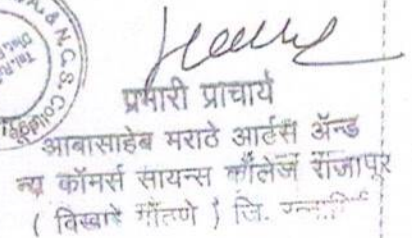 & N.C.S. College
प्रभारी प्राचार्य
आबासाहेब मराठे आर्टस् अ‍ॅन्ड
न्यू कॉमर्स सायन्स कॉलेज राजापूर
( विखारे गोंठणे ) जि.